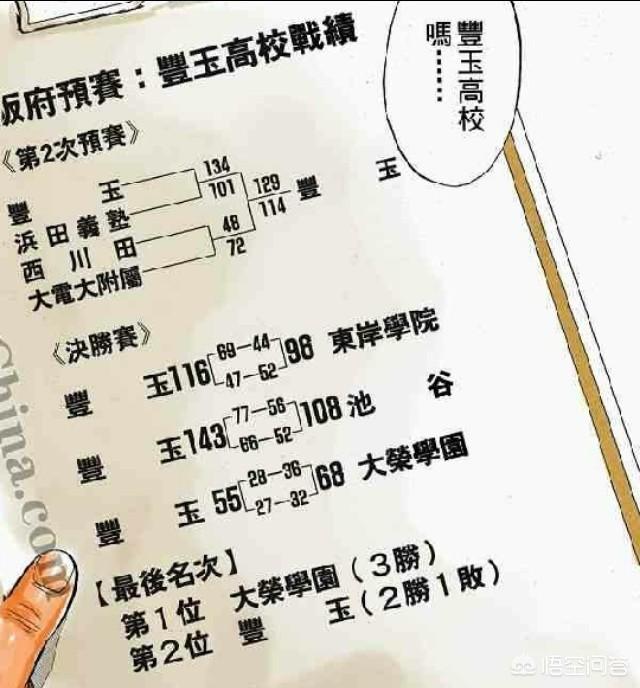 阪府預賽：豐玉高校戰績
豐玉高校
嗎……
《第2次預賽》
豐玉
浜田義塾
西川田
大電大附屬
134
101
48
72
129
114
豐玉
《決勝賽》
豐玉116 69—44 98 東岸學院
47—52
豐玉143 77—56 108 池谷
66—52
豐玉55 28—36 68 大榮學園
27—32
【最後名次】
第1位 大榮學園（3勝）
第2位 豐玉（2勝1敗）
China.com
悟空问答